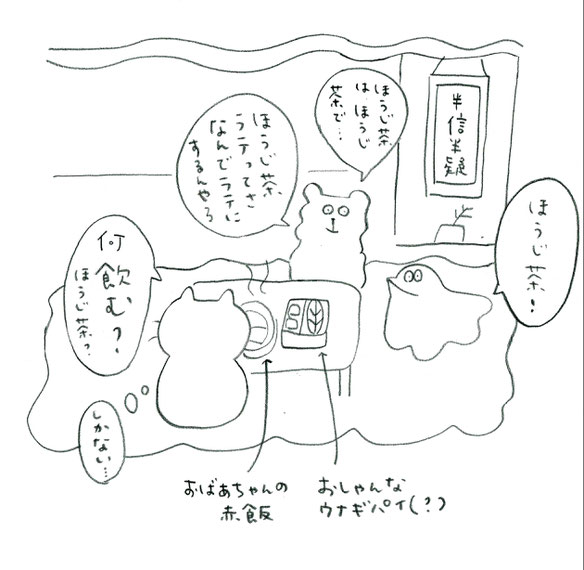 半信半疑
ほうじ茶
は、ほうじ
茶で…
ほうじ茶、
ラテってさ
なんでラテに
するんやろ
ほうじ茶！
何
飲む？
ほうじ茶？
しかない…
おばあちゃんの
赤飯
おしゃんな
ウナギパイ(？)